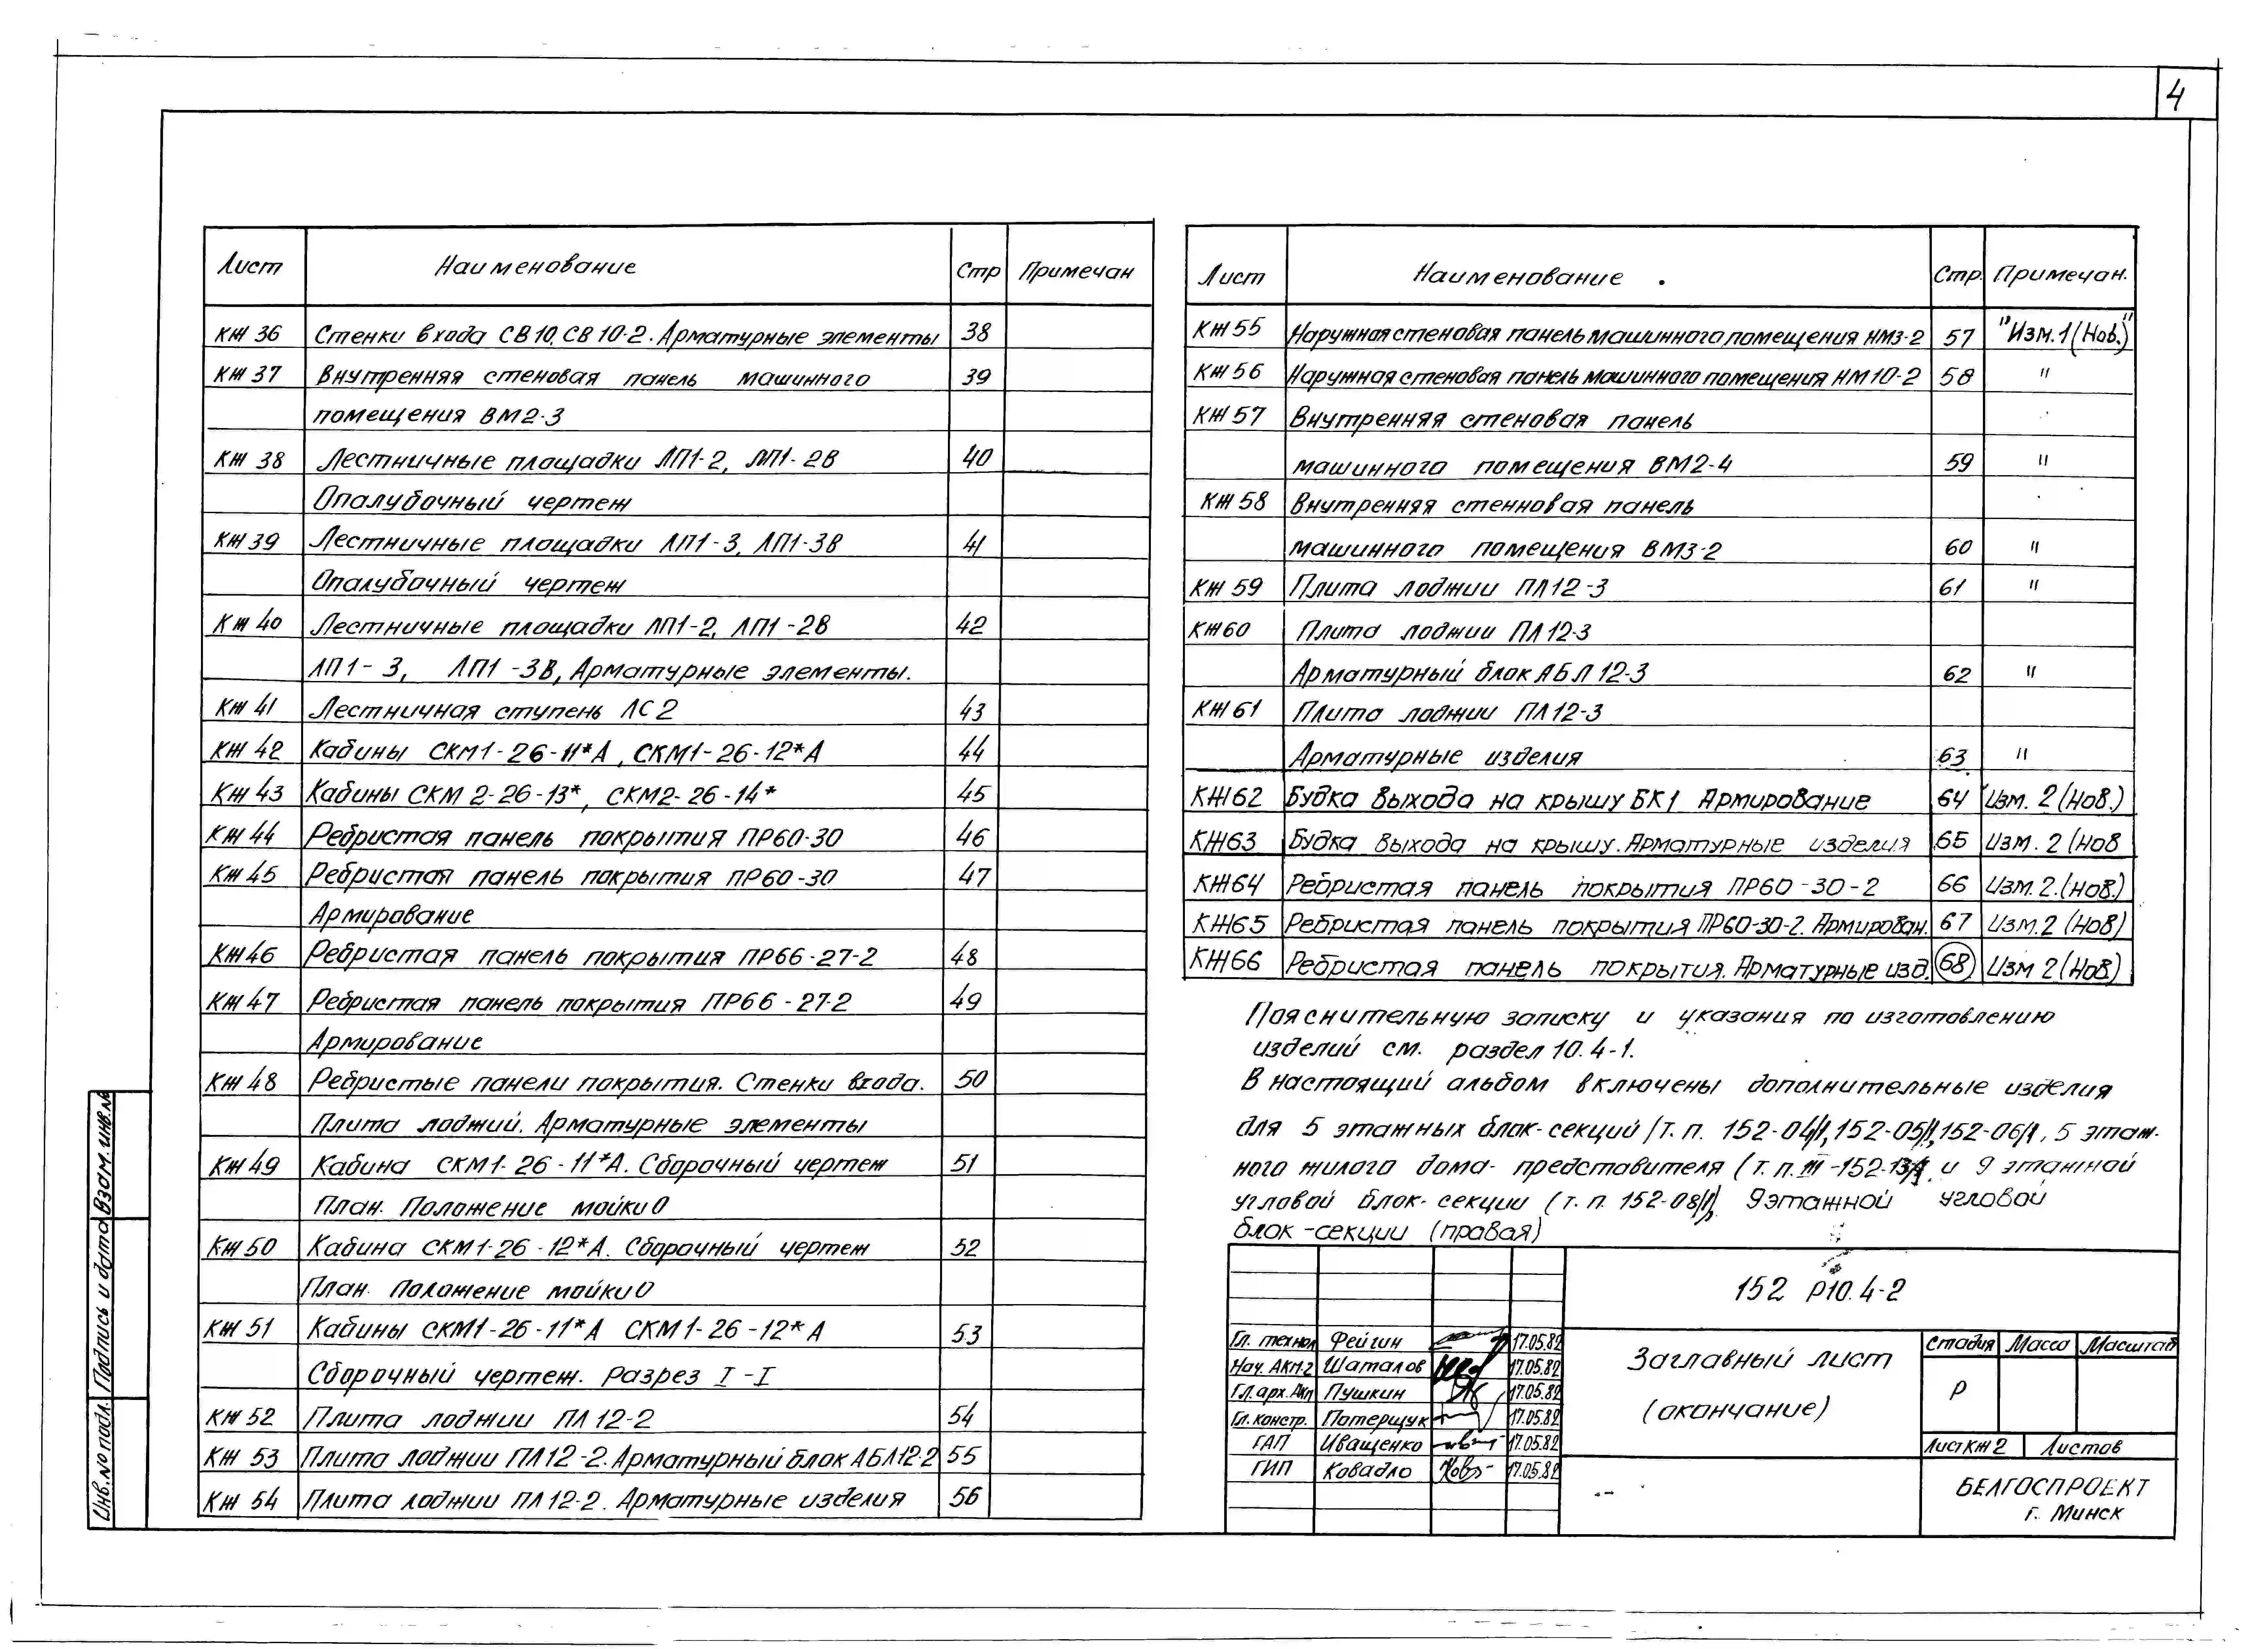 4
Лист Наименование Стр Примечан
КЖ 36 Стенки входа СВ10, СВ 10-2. Арматурные элементы 38
КЖ 37 Внутренняя стеновая панель машинного 39
помещения ВМ2-3
КЖ 38 Лестничные площадки ЛП1-2, ЛП1-2В 40
Опалубочный чертеж
КЖ 39 Лестничные площадки ЛП1-3, ЛП1-3В 41
Опалубочный чертеж
КЖ 40 Лестничные площадки ЛП1-2, ЛП1-2В 42
ЛП1-3, ЛП1-3В, Арматурные элементы.
КЖ 41 Лестничная ступень ЛС2 43
КЖ 42 Кабины СКМ1-26-11*А, СКМ1-26-12*А 44
КЖ 43 Кабины СКМ 2-26-13*, СКМ2-26-14* 45
КЖ 44 Ребристая панель покрытия ПР60-30 46
КЖ 45 Ребристая панель покрытия ПР60-30 47
Армирование
КЖ46 Ребристая панель покрытия ПР66-27-2 48
КЖ 47 Ребристая панель покрытия ПР66-27-2 49
Армирование
КЖ 48 Ребристые панели покрытия. Стенки входа. 50
Плита лоджий. Арматурные элементы
КЖ 49 Кабина СКМ1-26-11*А. Сборочный чертеж 51
План. Положение мойки 0
КЖ 50 Кабина СКМ1-26-12*А. Сборочный чертеж 52
План. Положение мойки 0
КЖ 51 Кабины СКМ1-26-11*А СКМ1-26-12*А 53
Сборочный чертеж. Разрез I-I
КЖ 52 Плита лоджии ПЛ 12-2 54
КЖ 53 Плита лоджии ПЛ12-2. Арматурный блок АБЛ12-2 55
КЖ 54 Плита лоджии ПЛ12-2. Арматурные изделия 56
Лист Наименование . Стр. Примечан.
КЖ 55 Наружная стеновая панель машинного помещения НМ3-2 57 "Изм.1(Нов.)"
КЖ 56 Наружная стеновая панель машинного помещения НМ10-2 58 "
КЖ 57 Внутренняя стеновая панель
машинного помещения ВМ2-4 59 "
КЖ 58 Внутренняя стенновая панель
машинного помещения ВМ3-2 60 "
КЖ 59 Плита лоджии ПЛ12-3 61 "
КЖ60 Плита лоджии ПЛ12-3
Арматурный блок АБЛ 12-3 62 "
КЖ 61 Плита лоджии ПЛ12-3
Арматурные изделия 63 "
КЖ62 Будка выхода на крышу БК1 Армирование 64 Изм. 2 (Нов.)
КЖ63 Будка выхода на крышу. Арматурные изделия 65 Изм. 2 (Нов
КЖ64 Ребристая панель покрытия ПР60-30-2 66 Изм. 2.(Нов.)
КЖ65 Ребристая панель покрытия ПР60-30-2. Армирован. 67 Изм.2 (Нов)
КЖ66 Ребристая панель покрытия. Арматурные изд. 68 Изм 2 (Нов.)
Пояснительную записку и указания по изготовлению
изделий см. раздел 10.4-1.
В настоящий альбом включены дополнительные изделия
для 5 этажных блок-секций /т.п. 152-04/1, 152-05/1, 152-06/1, 5 этаж-
ного жилого дома-представителя (т.п. III-152-13/1. и 9 этажной
угловой блок-секции (т.п. 152-08/1), 9этажной угловой
блок-секции (правая)
152 р10.4-2
Гл. технол Фейгин 17.05.82
Нач. АКМ-2 Шаталов 17.05.82
Гл. арх. АКМ Пушкин 17.05.82
Гл. констр. Потерщук 17.05.82
ГАП Иващенко 17.05.82
ГИП Ковадло 17.05.82
Заглавный лист
(окончание)
Стадия Масса Масштаб
Р
Лист КЖ 2 Листов
БЕЛГОСПРОЕКТ
г. Минск
Инв. № подл. Подпись и дата Взам. инв. №